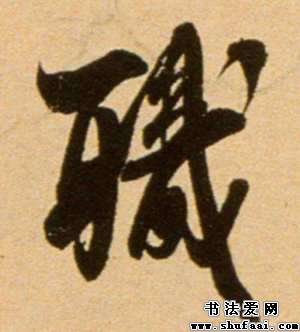 職
书法爱网
www.shufaai.com